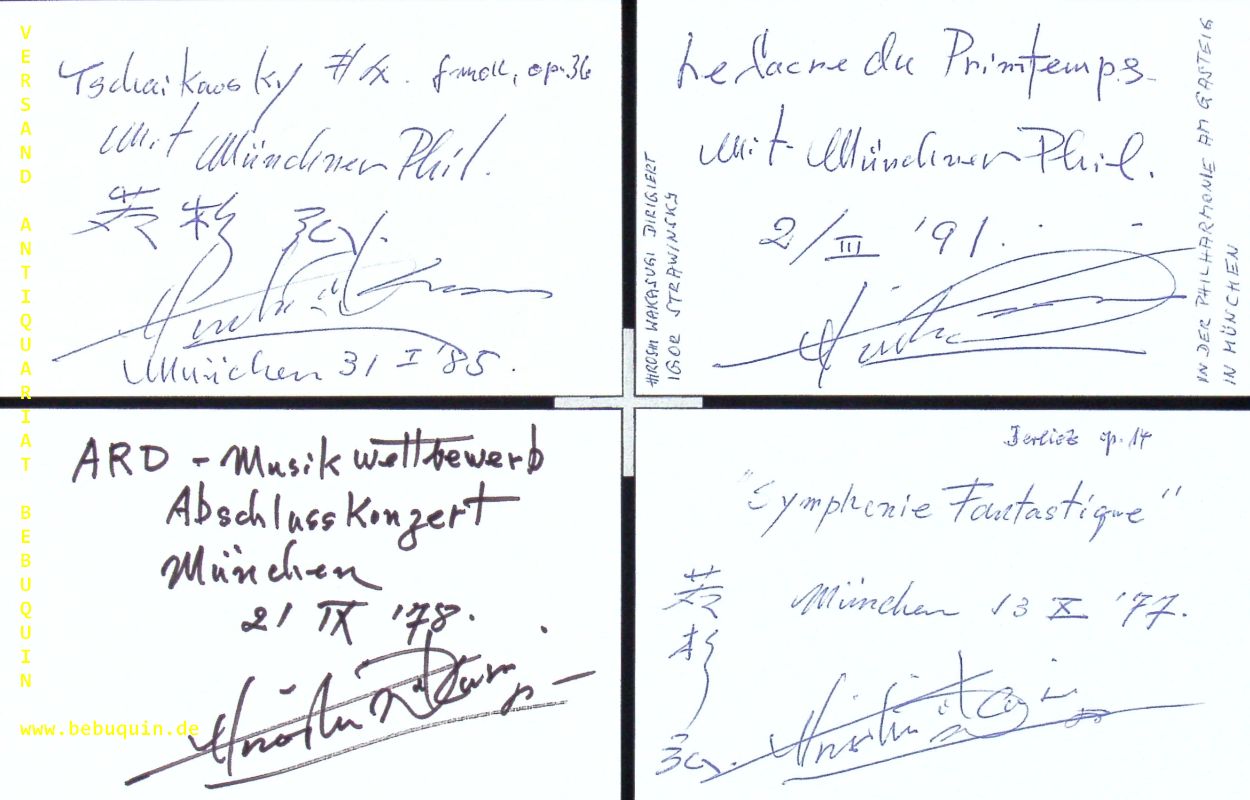 VERSAND ANTIQUARIAT BEBUQUIN
www.bebuquin.de
Tschaikowsky #4. f-moll, op. 36
Mit Münchner Phil.
若杉 弘.
München 31 I '85.
Le Sacre du Printemps
Mit Münchner Phil.
2/III '91.
HIROSHI WAKASUGI DIRIGIERT
IGOR STRAWINSKY
IN DER PHILHARMONIE AM GASTEIG
IN MÜNCHEN
ARD - Musikwettbewerb
Abschlusskonzert
München
21 IX '78.
Berlioz op. 14
"Symphonie Fantastique"
München 13 X '77.
若
杉
弘.